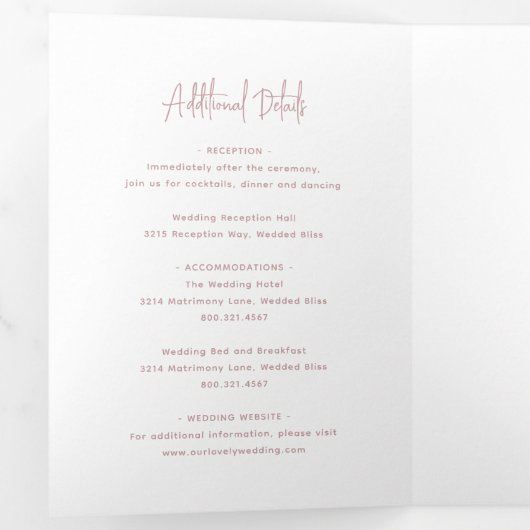 Additional Details
- RECEPTION -
Immediately after the ceremony,
join us for cocktails, dinner and dancing
Wedding Reception Hall
3215 Reception Way, Wedded Bliss
- ACCOMMODATIONS -
The Wedding Hotel
3214 Matrimony Lane, Wedded Bliss
800.321.4567
Wedding Bed and Breakfast
3214 Matrimony Lane, Wedded Bliss
800.321.4567
- WEDDING WEBSITE -
For additional information, please visit
www.ourlovelywedding.com